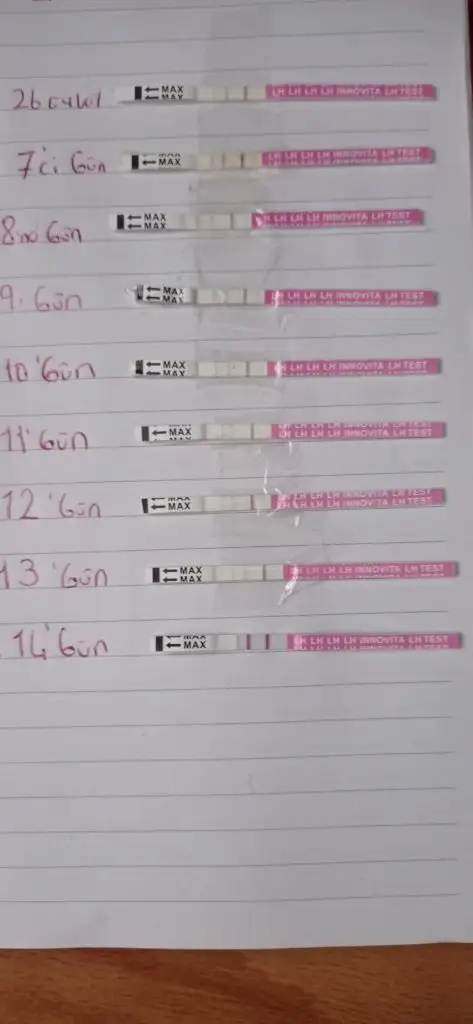 26 Eylül MAX MAX LH LH LH LH INNOVITA LH TEST
7'ci Gün MAX MAX LH LH LH LH INNOVITA LH TEST
8nci Gün MAX MAX LH LH LH INNOVITA LH TEST
9. Gün MAX MAX LH LH LH LH INNOVITA LH TEST
10'Gün MAX MAX LH LH LH INNOVITA LH TEST
11'Gün MAX LH LH LH LH INNOVITA LH TEST
12'Gün MAX MAX LH LH LH LH INNOVITA LH TEST
13'Gün MAX MAX LH LH LH INNOVITA LH TEST
14'Gün MAX MAX LH LH LH INNOVITA LH TEST